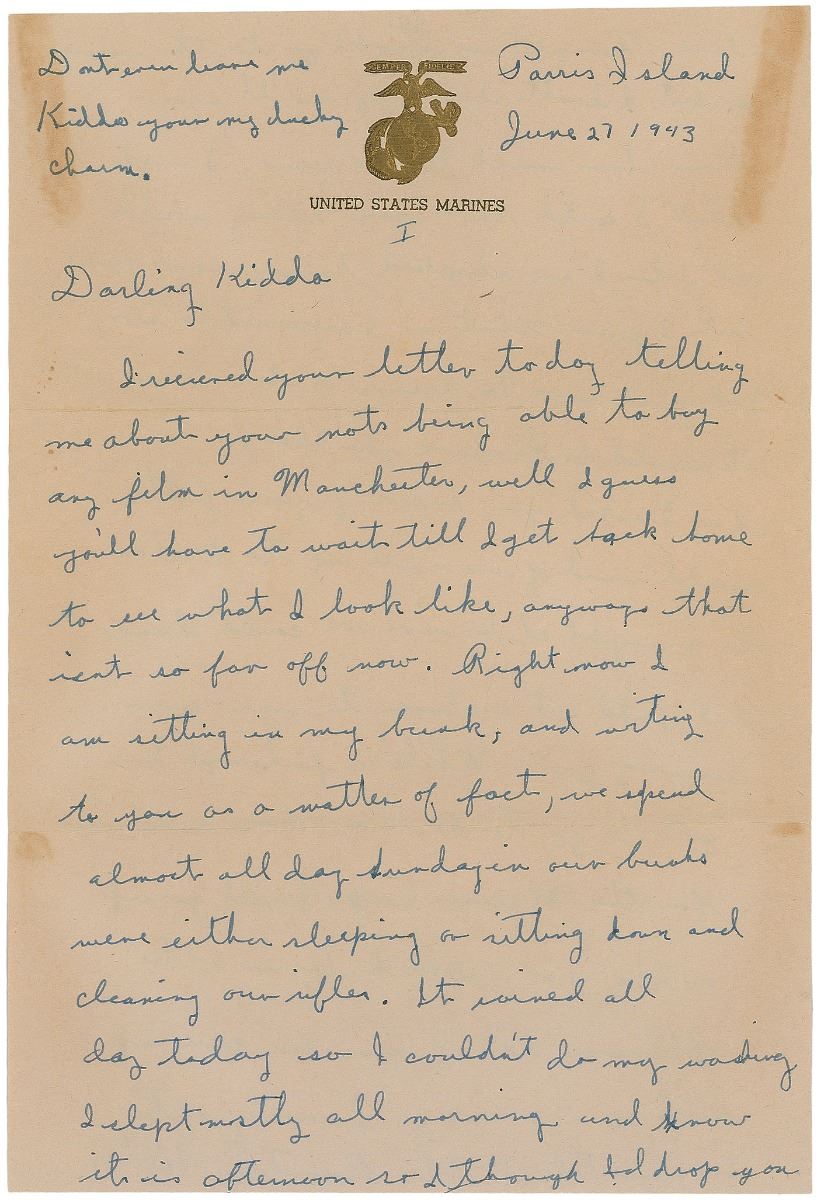 Dont ever leave me
Kiddo your my lucky
charm.
SEMPER FIDELIS
Parris Island
June 27 1943
UNITED STATES MARINES
I
Darling Kiddo
I recieved your letter today telling
me about your not being able to buy
any film in Manchester, well I guess
you'll have to wait till I get back home
to see what I look like, anyways that
isnt so far off now. Right now I
am sitting in my bunk, and writing
to you as a matter of fact, we spend
almost all day Sunday in our bunks
were either sleeping or sitting down and
cleaning our rifles. It rained all
day today so I couldn't do my washing
I slept mostly all morning and know
its is afternoon so I though I'd drop you